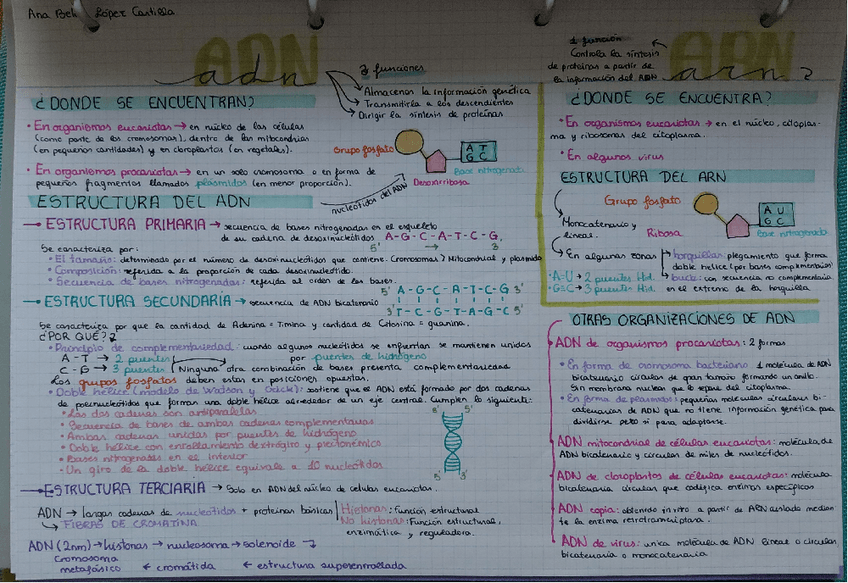 Ana Bel López Castilla
ADN
adn
3 funciones
Almacenar la información genética
Transmitirla a los descendientes
Dirigir la síntesis de proteínas
¿DONDE SE ENCUENTRAN?
• En organismos eucariotas → en núcleo de las células
(como parte de los cromosomas), dentro de las mitocondrias
(en pequeñas cantidades) y en cloroplastos (en vegetales).
• En organismos procariotas → en un solo cromosoma o en forma de
pequeños fragmentos llamados plásmidos (en menor proporción).
Grupo fosfato
A T
G C
Base nitrogenada
Desoxirribosa
nucleótidos del ADN
ESTRUCTURA DEL ADN
→ ESTRUCTURA PRIMARIA → secuencia de bases nitrogenadas en el esqueleto
de su cadena de desoxinucleótidos A-G-C-A-T-C-G
5' → 3'
Se caracteriza por:
• El tamaño: determinado por el número de desoxinucleótidos que contiene. Cromosomas > Mitocondrial y plásmido
• Composición: referida a la proporción de cada desoxinucleótido.
• Secuencia de bases nitrogenadas: referida al orden de las bases.
→ ESTRUCTURA SECUNDARIA → secuencia de ADN bicatenario
5' A-G-C-A-T-C-G 3'
3' T-C-G-T-A-G-C 5'
Se caracteriza por que la cantidad de Adenina = Timina y cantidad de Citosina = guanina.
¿POR QUÉ?
• Principio de complementariedad: cuando algunos nucleótidos se enfrentan se mantienen unidos
por puentes de hidrógeno
A-T → 2 puentes
C-G → 3 puentes (Ninguna otra combinación de bases presenta complementariedad
Los grupos fosfatos deben estas en posiciones opuestas.
• Doble hélice (modelo de Watson y Crick): sostiene que el ADN está formado por dos cadenas
de polinucleótidos que forman una doble hélice alrededor de un eje central. Cumplen lo siguiente:
• Las dos cadenas son antiparalelas
• Secuencia de bases de ambas cadenas complementarias
• Ambas cadenas unidas por puentes de hidrógeno
• Doble hélice con enrollamiento dextrógiro y plectonémico
• Bases nitrogenadas en el interior
• Un giro de la doble hélice equivale a 10 nucleótidos
3' 5'
5' 3'
→ ESTRUCTURA TERCIARIA → Solo en ADN del núcleo de celulas eucariotas.
ADN → largas cadenas de nucleótidos + proteínas básicas
Histonas: función estructural
No histonas: Función estructural,
enzimática y reguladora.
FIBRAS DE CROMATINA
ADN (2nm) → histonas → nucleosoma → solenoide
Cromosoma
metafásico ← cromátida ← estructura superenrollada
ARN
arn
1 función
Controla la síntesis
de proteinas a partir de
la información del ADN
¿DONDE SE ENCUENTRA?
• En organismos eucariotas → en el núcleo, citoplas-
ma y ribosomas del citoplasma.
• En algunos virus
ESTRUCTURA DEL ARN
Grupo fosfato
A U
G C
Base nitrogenada
Ribosa
Monocatenario y
lineal.
En algunas zonas
horquillas: plegamiento que forma
doble hélice (por bases complementarias)
bucle: con secuencia no complementaria
en el extremo de la horquilla
• A-U → 2 puentes Hid.
• G≡C → 3 puentes Hid.
OTRAS ORGANIZACIONES DE ADN
ADN de organismos procariotas: 2 formas
• En forma de cromosoma bacteriano: 1 molécula de ADN
bicatenario circular de gran tamaño formando un anillo.
Sin membrana nuclear que lo separe del citoplasma.
• En forma de plásmidos: pequeñas moléculas circulares bi-
catenarias de ADN que no tiene información genética para
dividirse pero si para adaptarse.
ADN mitocondrial de células eucariotas: molécula de
ADN bicatenario y circular de miles de nucleótidos.
ADN de cloroplastos de células eucariotas: molécula
bicatenaria circular que codifica enzimas específicas
ADN copia: obtenido in vitro a partir de ARN aislado median
te la enzima retrotranscriptasa.
ADN de virus: unica molécula de ADN lineal o circular
bicatenaria o monocatenaria